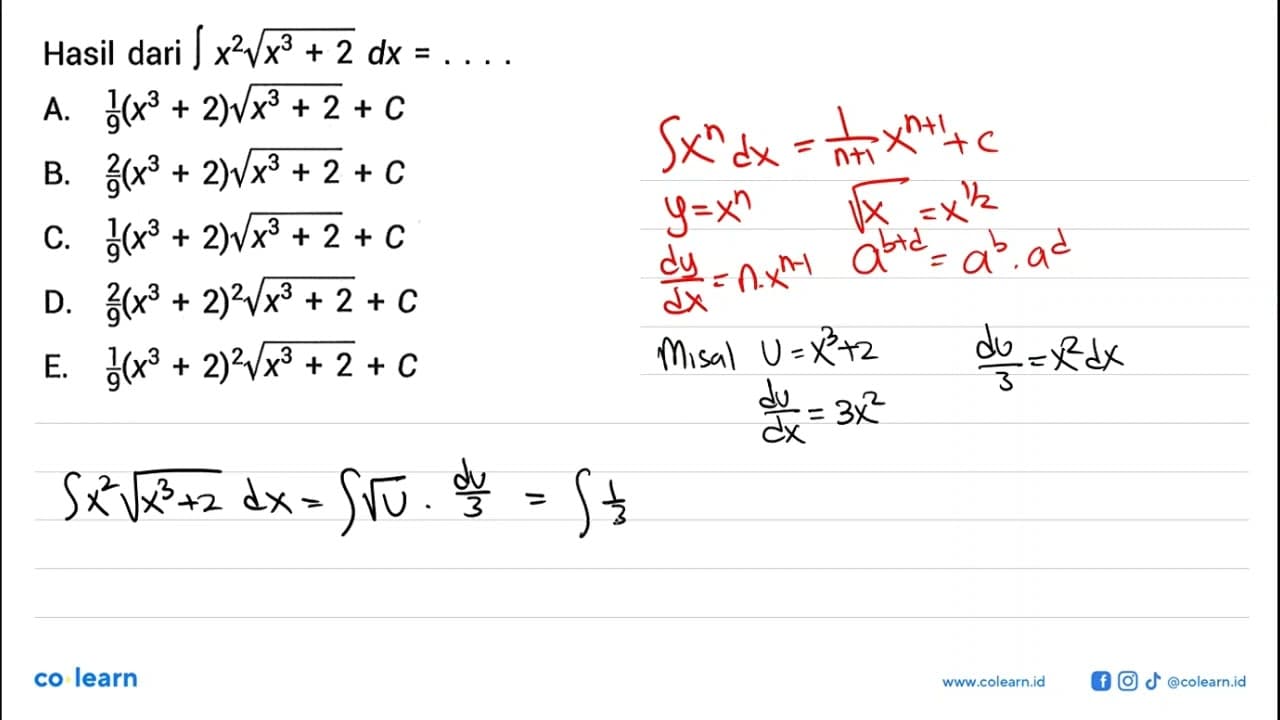 Hasil dari ∫ x²√(x³ + 2) dx = . . . .
A. 1/9(x³ + 2)√(x³ + 2) + C
B. 2/9(x³ + 2)√(x³ + 2) + C
C. 1/9(x³ + 2)√(x³ + 2) + C
D. 2/9(x³ + 2)²√(x³ + 2) + C
E. 1/9(x³ + 2)²√(x³ + 2) + C
∫xⁿ dx = 1/(n+1) xⁿ⁺¹ + c
y = xⁿ √x = x^(1/2)
dy/dx = n.xⁿ⁻¹ a^(b+d) = a^b . a^d
Misal U = x³+2 du/3 = x² dx
du/dx = 3x²
∫x²√(x³+2) dx = ∫√U . du/3 = ∫ 1/3
co learn
www.colearn.id
@colearn.id